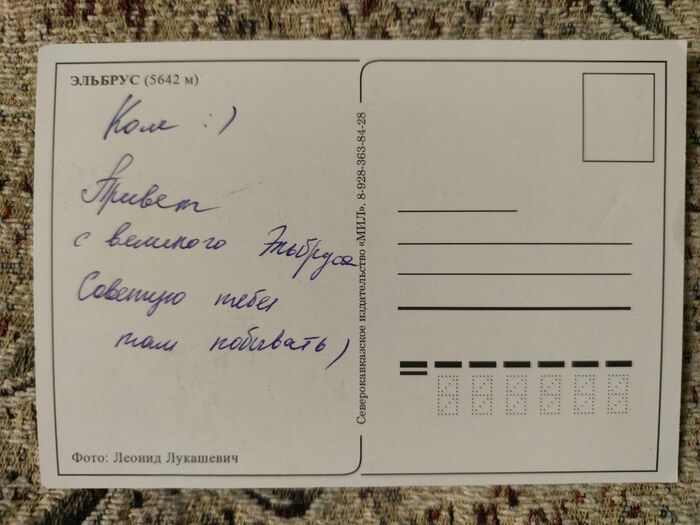 ЭЛЬБРУС (5642 м)
Коле :)
Привет
с великого Эльбруса
Советую тебе
там побывать)
Фото: Леонид Лукашевич
Северокавказское издательство «МИЛ». 8-928-363-84-28